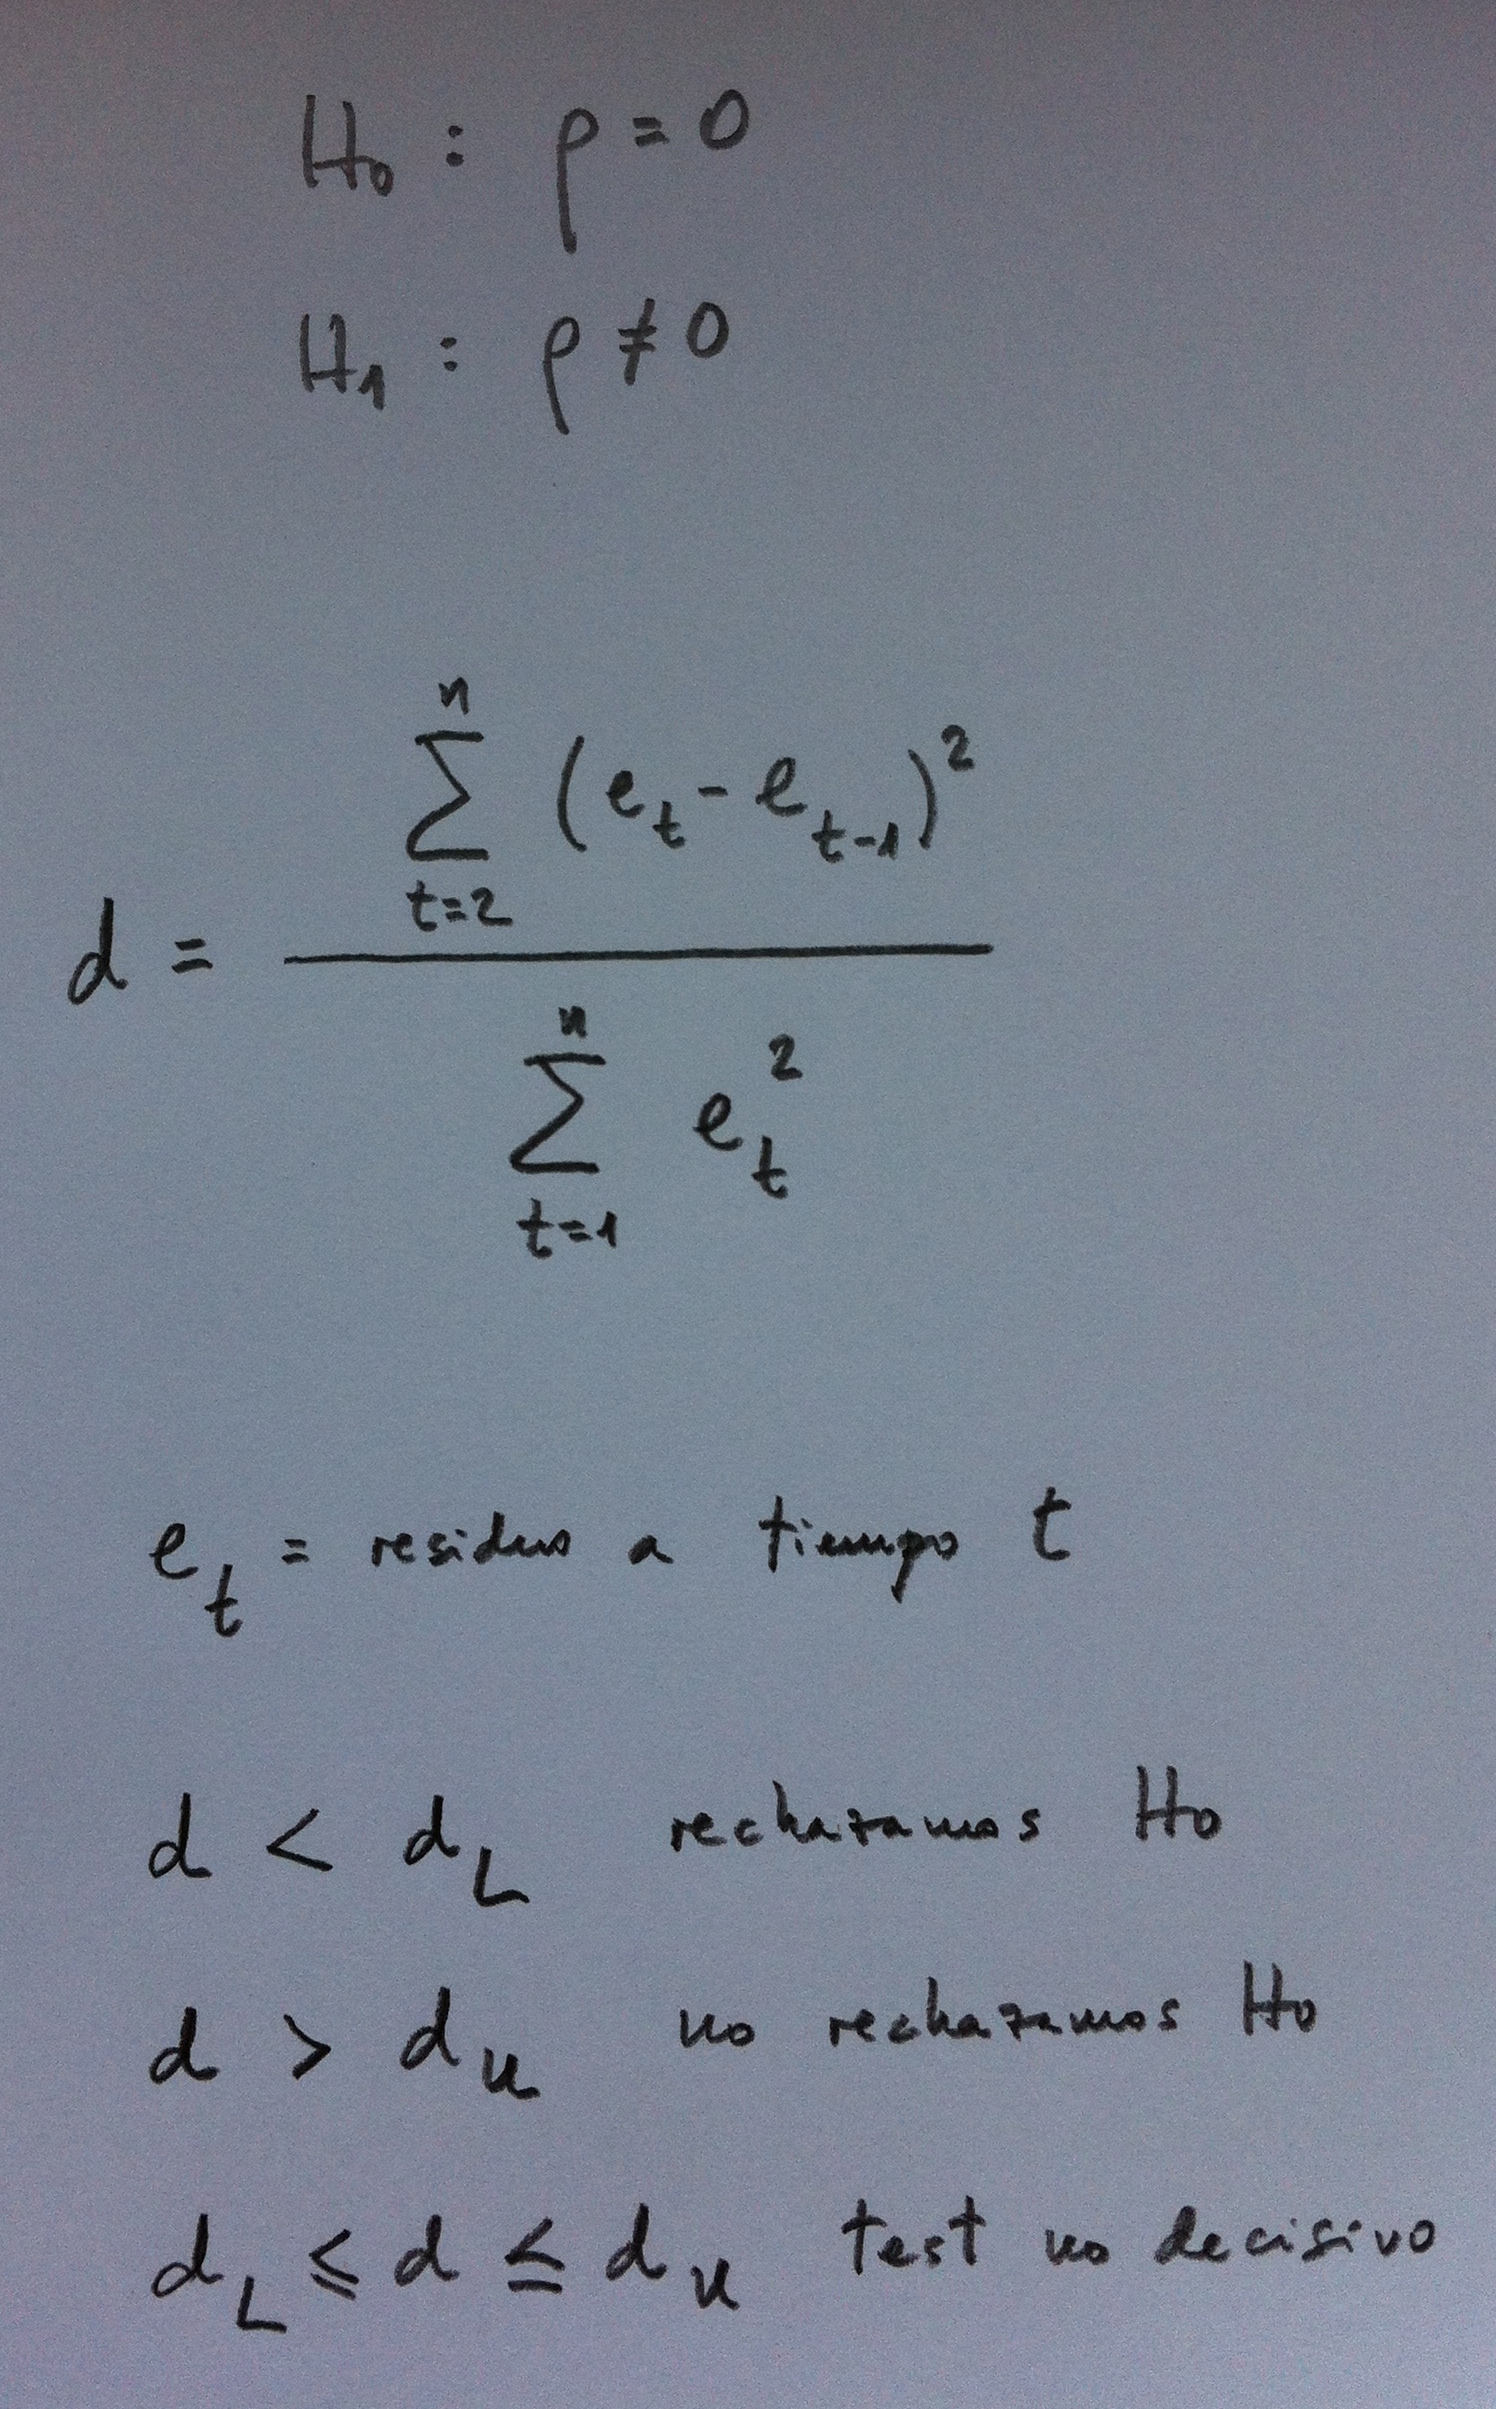 H₀ : ρ = 0
H₁ : ρ ≠ 0
d = \frac{\sum_{t=2}^{n} (e_t - e_{t-1})^2}{\sum_{t=1}^{n} e_t^2}
e_t = residuo a tiempo t
d < d_L rechazamos H₀
d > d_u no rechazamos H₀
d_L ≤ d ≤ d_u test no decisivo